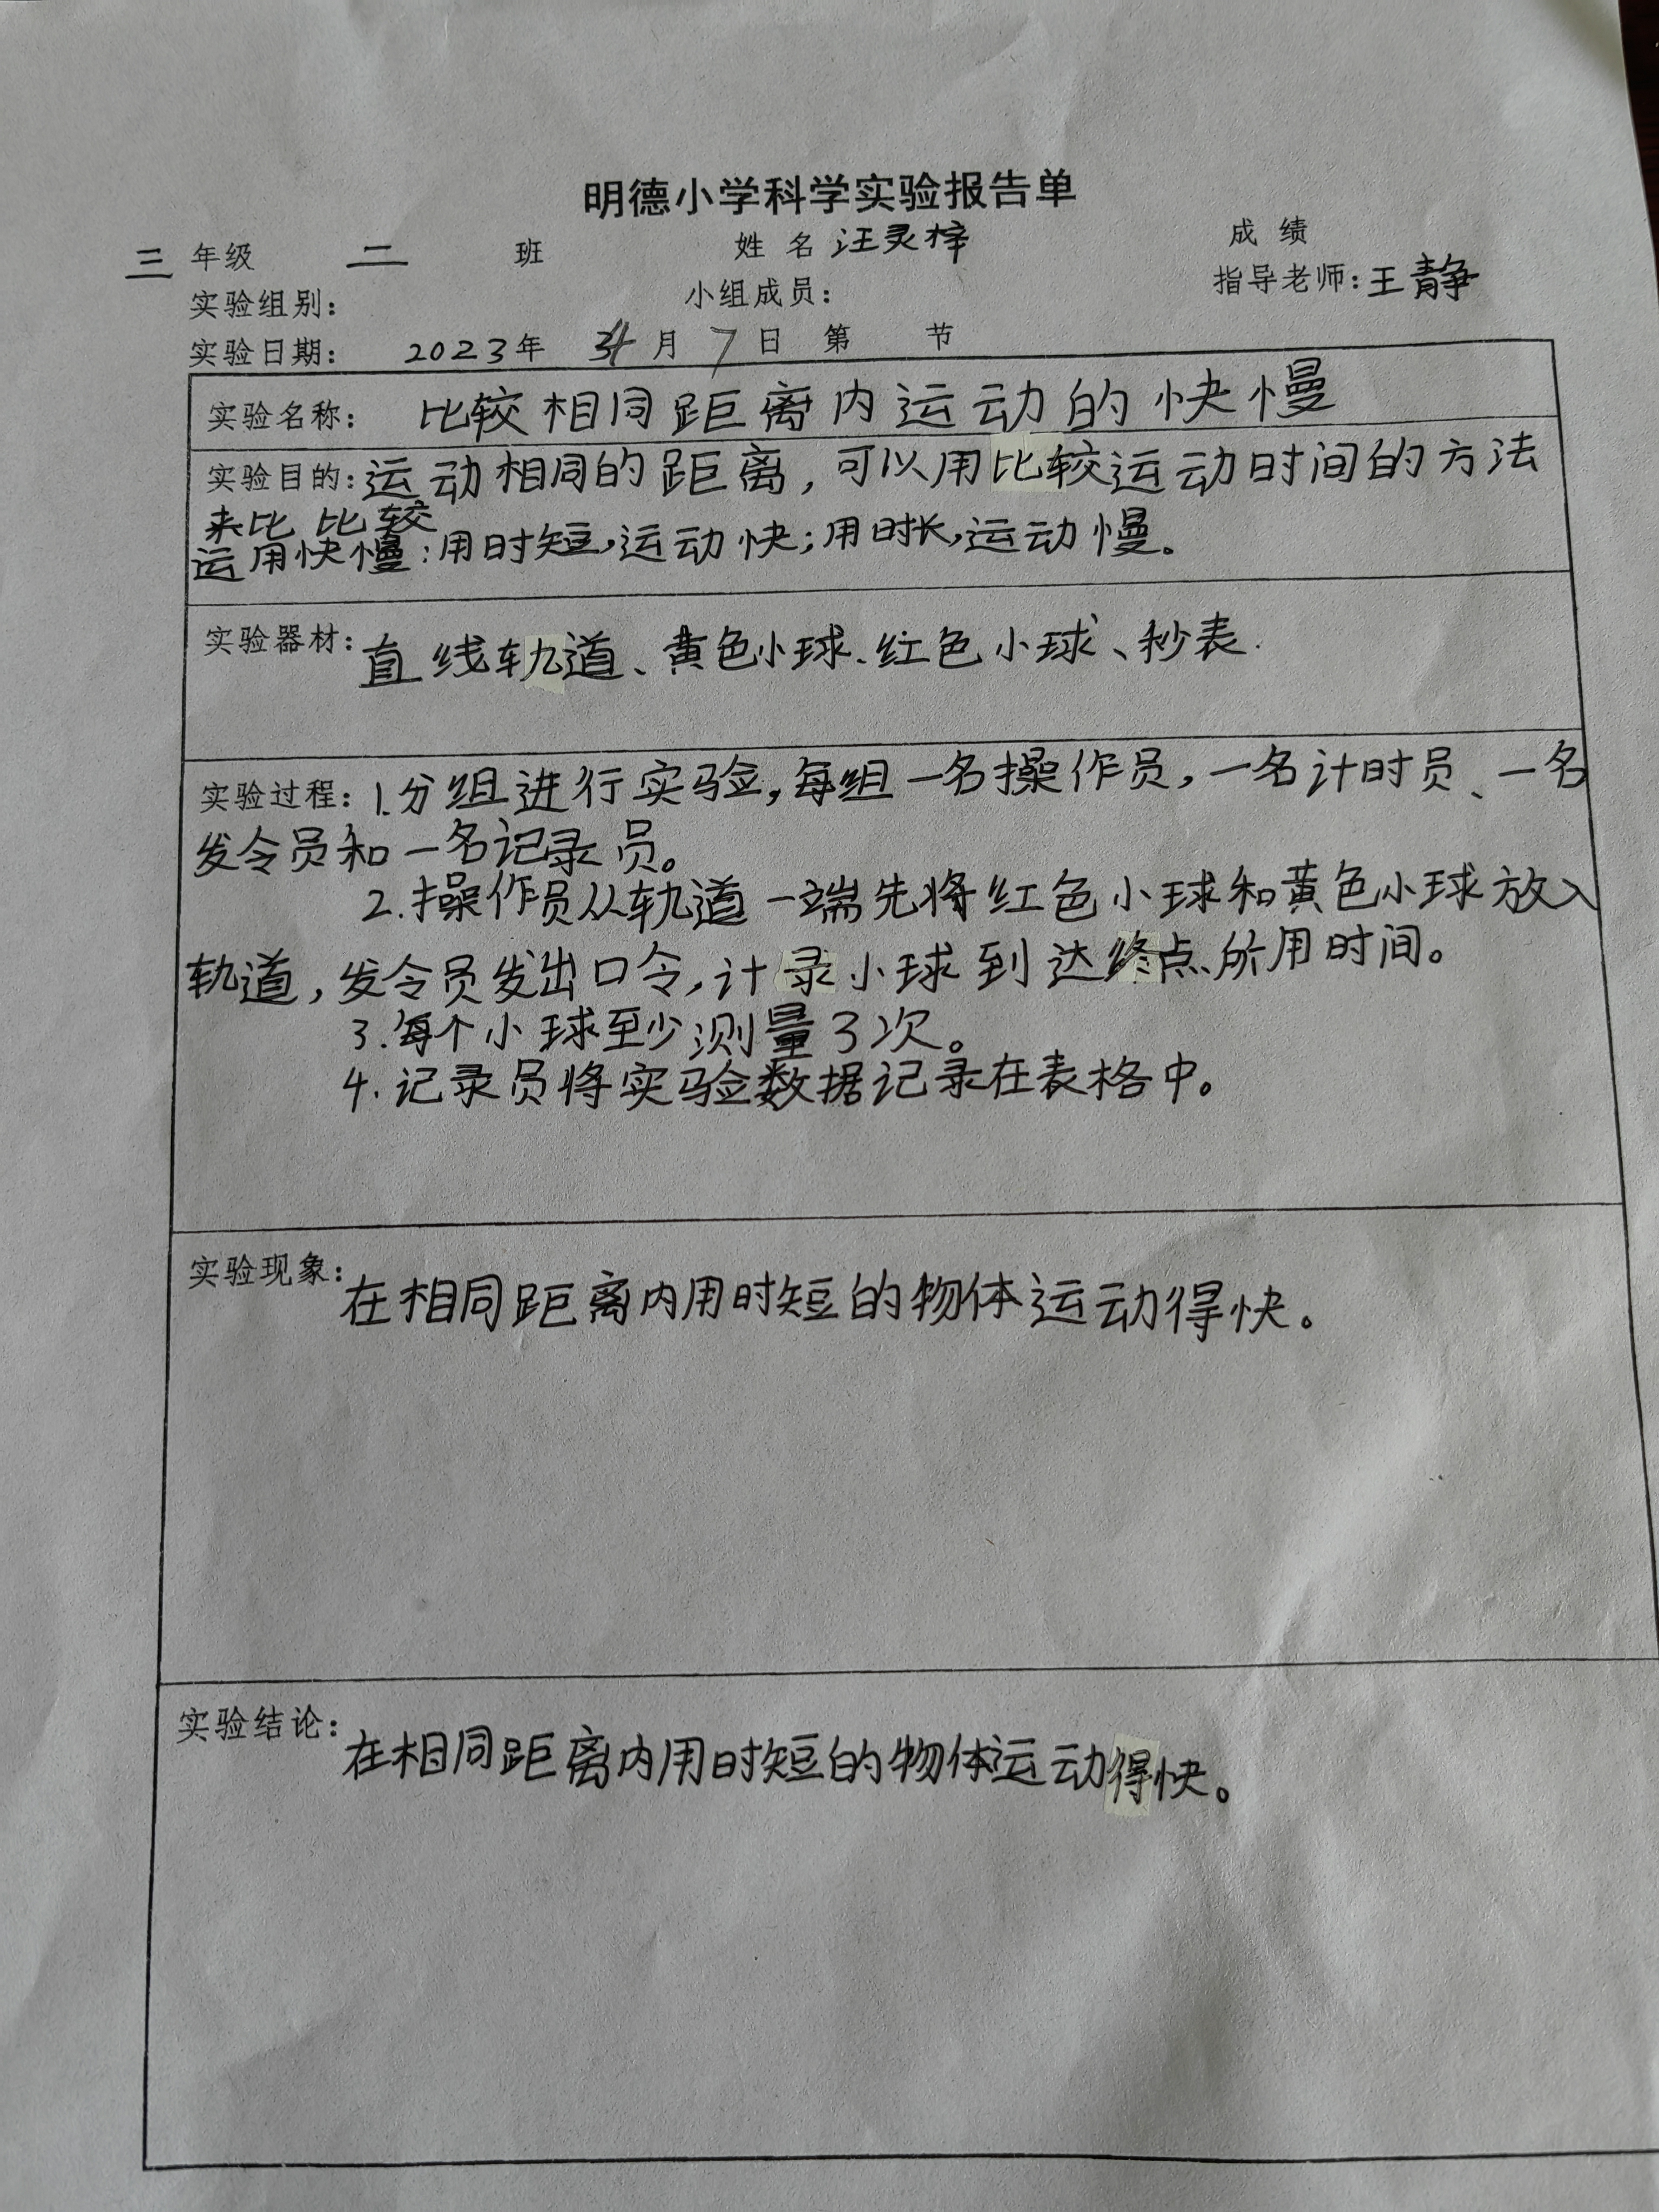 明德小学科学实验报告单
三 年级 二 班 姓名 汪灵梓 成绩
实验组别： 小组成员： 指导老师：王静
实验日期： 2023年 月 7日 第 节
实验名称： 比较相同距离内运动的快慢
实验目的：运动相同的距离，可以用比较运动时间的方法
来比 比较
运用快慢：用时短，运动快；用时长，运动慢。
实验器材：直线轨道、黄色小球、红色小球、秒表.
实验过程：1.分组进行实验，每组一名操作员，一名计时员、一名
发令员和一名记录员。
2.操作员从轨道一端先将红色小球和黄色小球放入
轨道，发令员发出口令，计录小球到达终点所用时间。
3.每个小球至少测量3次。
4.记录员将实验数据记录在表格中。
实验现象：在相同距离内用时短的物体运动得快。
实验结论：在相同距离内用时短的物体运动得快。